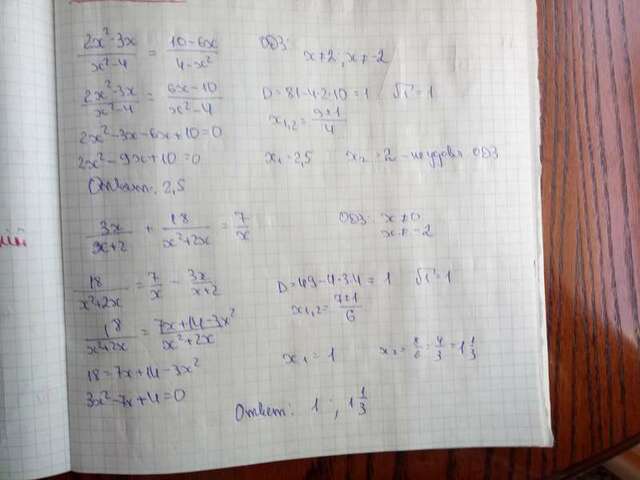 (2x²-3x)/(x²-4) = (10-6x)/(4-x²) ОДЗ: x≠2, x≠-2
(2x²-3x)/(x²-4) = (6x-10)/(x²-4) D=81-4·2·10=1 √1=1
2x²-3x-6x+10=0 x₁,₂=(9±1)/4
2x²-9x+10=0 x₁=2,5 x₂=2 -неудовл ОДЗ
Ответ: 2,5
3x/(x+2) + 18/(x²+2x) = 7/x ОДЗ: x≠0
x≠-2
18/(x²+2x) = 7/x - 3x/(x+2) D=49-4·3·4=1 √1=1
x₁,₂=(7±1)/6
18/(x²+2x) = (7x+14-3x²)/(x²+2x)
18=7x+14-3x² x₁=1 x₂=8/6=4/3=1 1/3
3x²-7x+4=0
Ответ: 1; 1 1/3